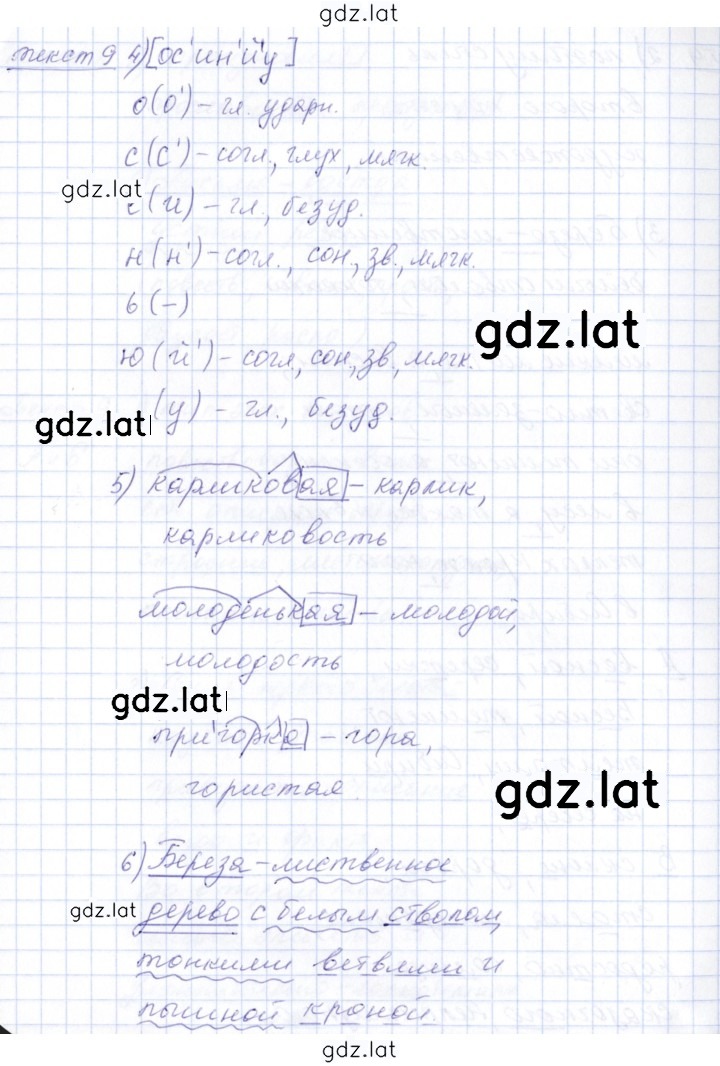 gdz.lat
текст 9 4) [ос'ин'й'у]
о(о') – гл. ударн.
с (с') – согл., глух, мягк.
gdz.lat
(и) – гл., безуд.
н (н') – согл., сон., зв., мягк.
ь (–)
gdz.lat
ю (й') – согл, сон, зв, мягк.
gdz.lat
(у) – гл., безуд.
5) карликовая – карлик,
карликовость
молоденькая – молодой,
молодость
gdz.lat
пригорка – гора,
гористая
gdz.lat
6) Береза – лиственное
gdz.lat
дерево с белым стволом
тонкими ветвями и
пышной кроной.
gdz.lat